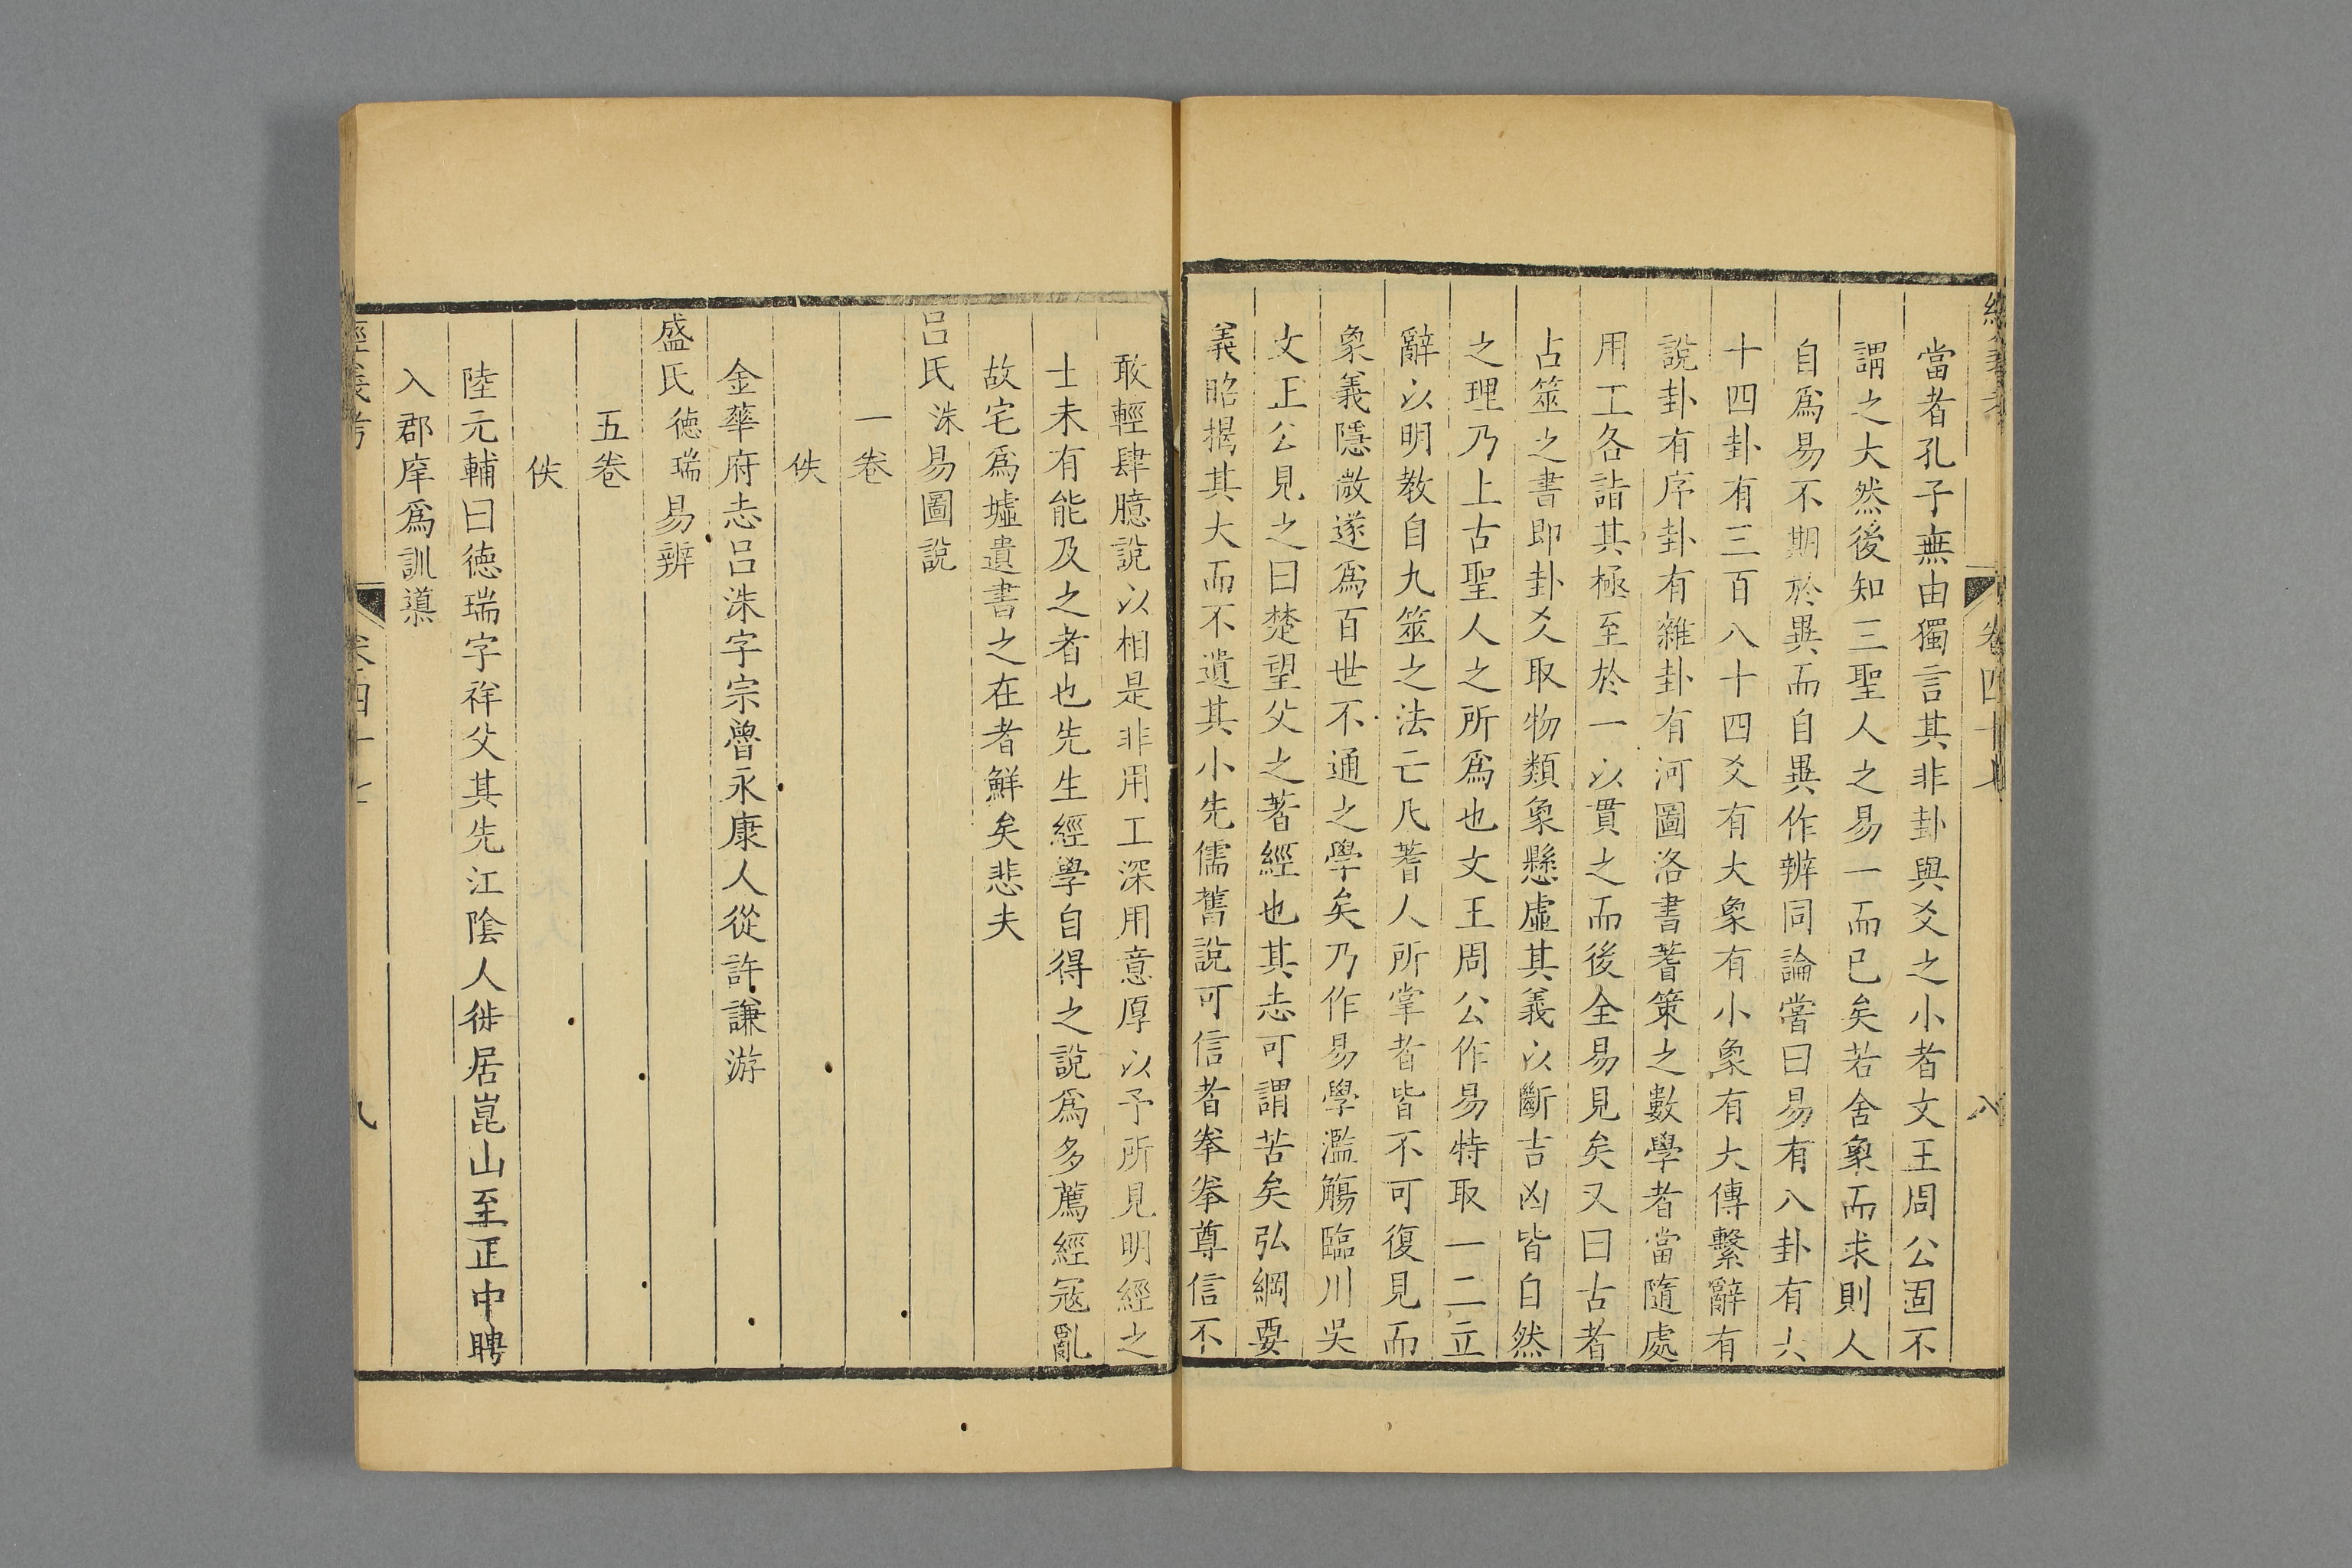 當者孔子無由獨言其非卦與爻之小者文王周公固不
謂之大然後知三聖人之易一而已矣若舍象而求則人
自爲易不期於異而自異作辨同論嘗曰易有八卦有六
十四卦有三百八十四爻有大象有小象有大傳繫辭有
說卦有序卦有雜卦有河圖洛書蓍策之數學者當隨處
用工各詣其極至於一以貫之而後全易見矣又曰古者
占筮之書即卦爻取物類象懸虛其義以斷吉凶皆自然
之理乃上古聖人之所爲也文王周公作易特取一二立
辭以明教自九筮之法亡凡蓍人所掌者皆不可復見而
象義隱微遂爲百世不通之學矣乃作易學濫觴臨川吳
文正公見之曰楚望父之著經也其志可謂苦矣弘綱要
義昭揭其大而不遺其小先儒舊說可信者拳拳尊信不
敢輕肆臆說以相是非用工深用意厚以予所見明經之
士未有能及之者也先生經學自得之說爲多薦經冦亂
故宅爲墟遺書之在者鮮矣悲夫
呂氏洙易圖說
一卷
佚
金華府志呂洙字宗魯永康人從許謙游
盛氏德瑞易辨
五卷
佚
陸元輔曰德瑞字祥父其先江陰人徙居崑山至正中聘
入郡庠爲訓導
經義考
卷四十七
八